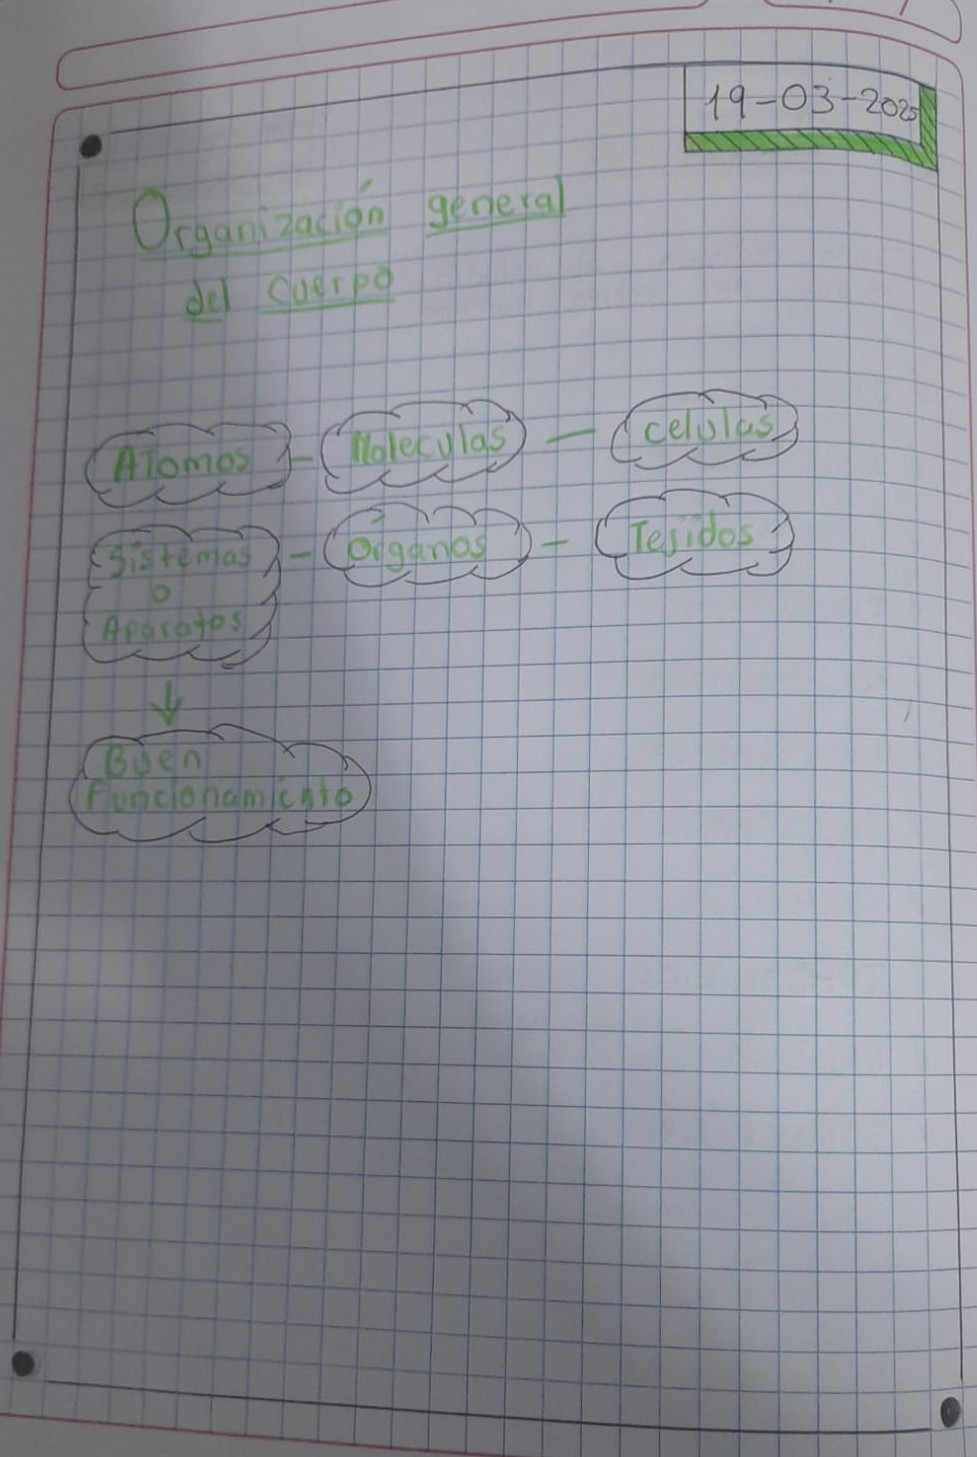 19-03-2025
Organización general
del cuerpo
Atomos - Moleculas - celulas
Sistemas - Órganos - Tejidos
o
Aparatos
↓
Buen
Funcionamiento